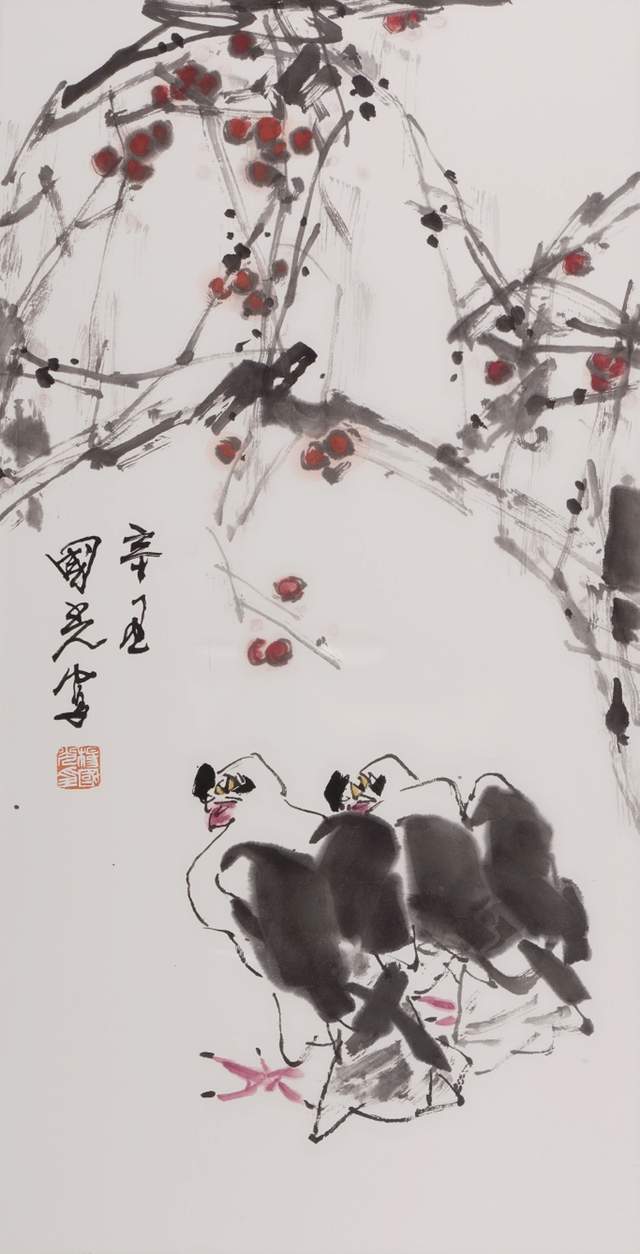 辛丑
國光寫